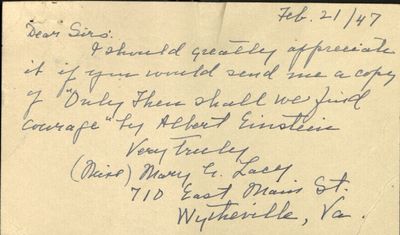 Feb. 21/47
Dear Sirs:
I should greatly appreciate
it if you would send me a copy
of "Only Then shall we find
courage" by Albert Einstein
Very truly
(Miss) Mary G. Lacy
710 East Main St.
Wytheville, Va.